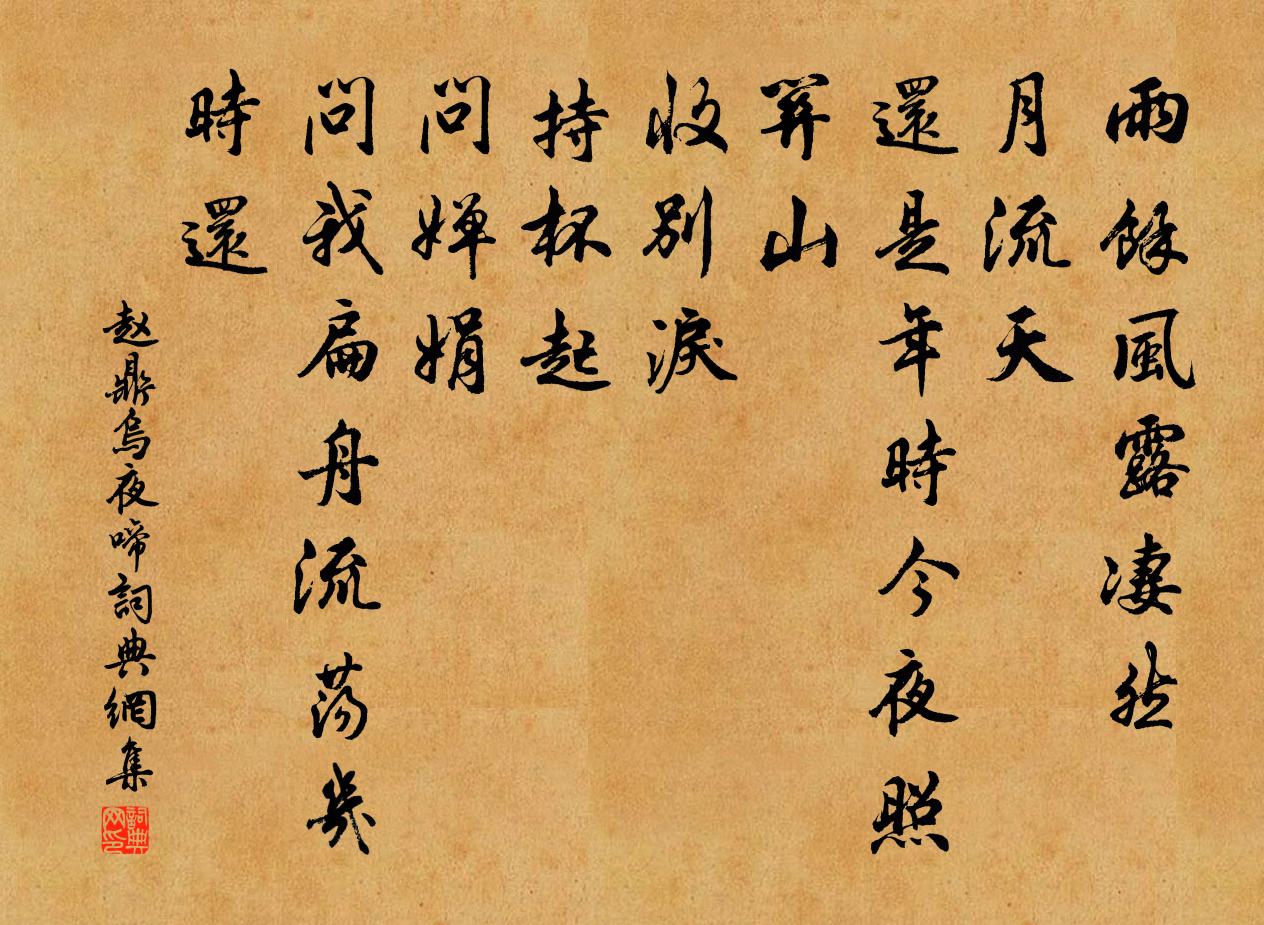 雨餘風露凄然
月流天
還是年時今夜照
關山
收別淚
持杯起
問嬋娟
問我扁舟流蕩幾
時還
赵鼎烏夜啼詞典網集
詞典网印